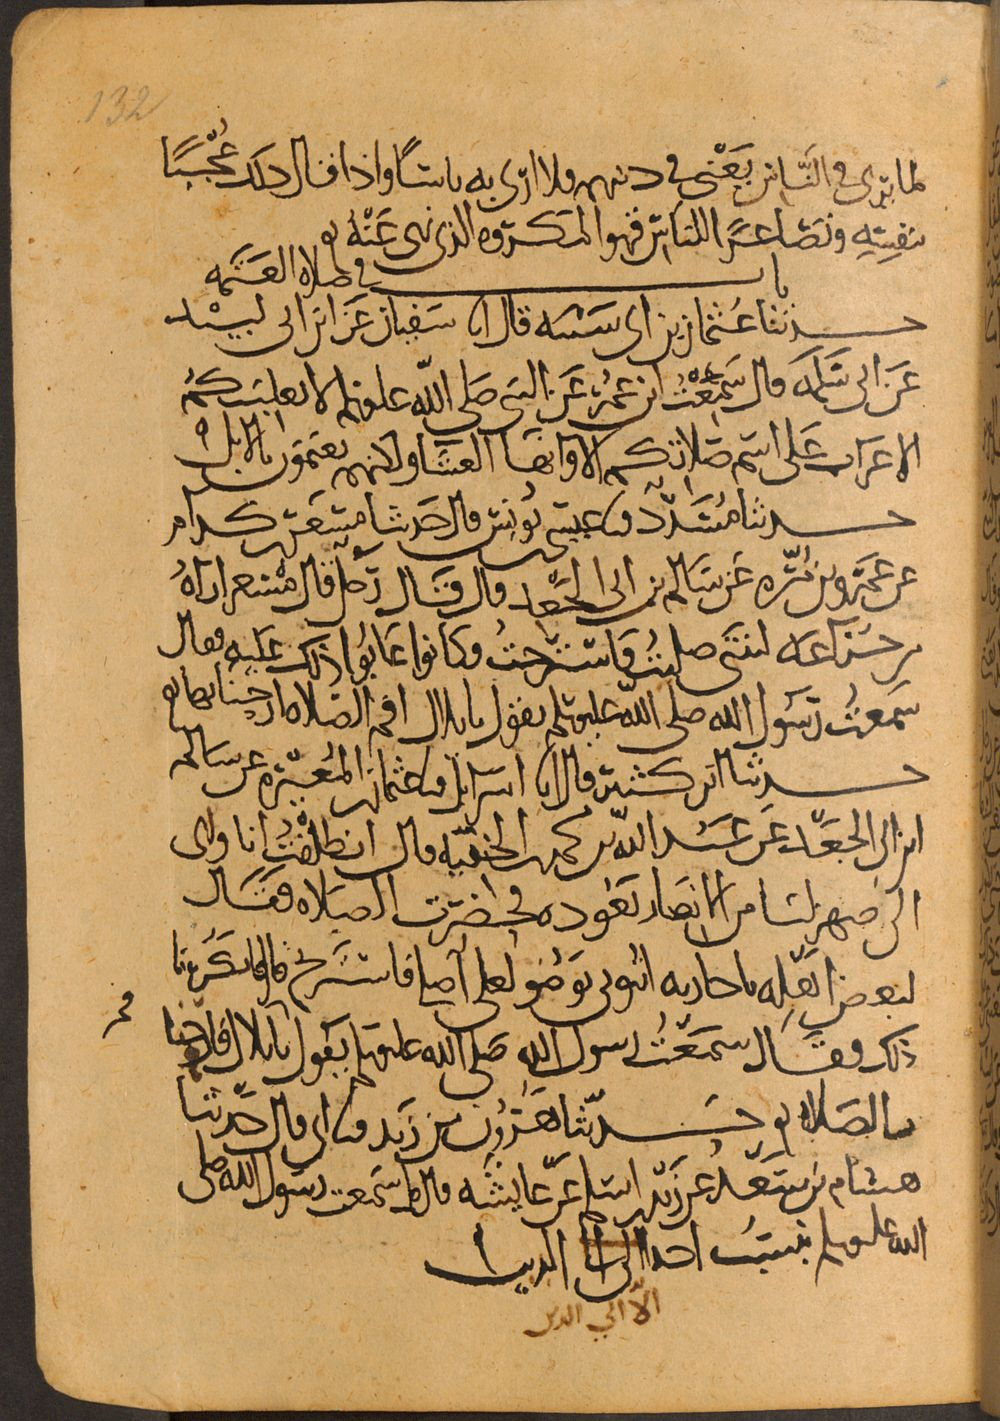 132
لما يرى في الناس يعني في دينهم فلا ارى به باسا واذا قال ذلك عجبا
بنفسه وتصاغرا للناس فهو المكروه الذي نهي عنه
باب في صلاة العتمة
حدثنا عثمان بن ابي شيبه قال انا سفيان عن ابن ابي لبيد
عن ابي سلمه قال سمعت ابن عمر عن النبي صلى الله عليه وسلم لا يغلبنكم
الاعراب على اسم صلاتكم الا وانها العشا ولكنهم يعتمون بالابل
حدثنا مسدد نا عيسى بن يونس قال حدثنا مسعر بن كدام
عن عمرو بن مره عن سالم بن ابي الجعد قال قال رجل قال مسعر اراه
من خزاعه ليتني صليت فاسترحت وكانوا عابوا ذلك عليه فقال
سمعت رسول الله صلى الله عليه وسلم يقول يا بلال اقم الصلاه ارحنا بها
حدثنا ابن كثير قال انا اسرايل نا عثمان بن المغيره عن سالم
ابن ابي الجعد عن عبد الله بن محمد بن الحنفيه قال انطلقت انا وابي
الى صهر لنا من الانصار نعوده فحضرت الصلاه فقال
لبعض اهله يا جاريه ائتوني بوضو لعلي اصلي فاستريح قال فانكرنا
ذلك فقال سمعت رسول الله صلى الله عليه وسلم يقول يا بلال فارحنا
بالصلاه حدثنا هرون بن زيد نا ابي قال حدثنا
هشام بن سعد عن زيد بن اسلم عن عايشه قال ما سمعت رسول الله صلى
الله عليه وسلم ينسب احدا الى الدين
الا الي الدين